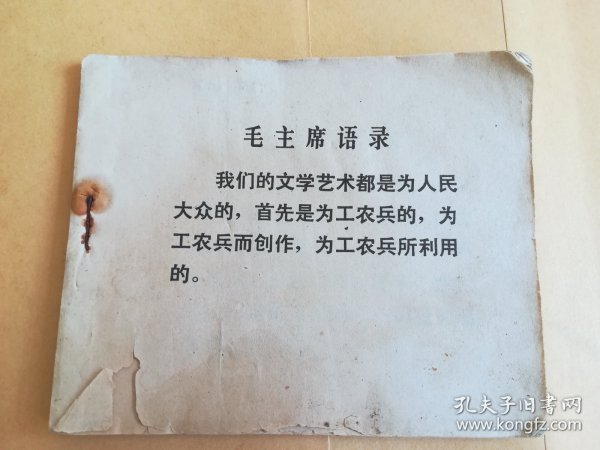 毛主席语录
我们的文学艺术都是为人民
大众的，首先是为工农兵的，为
工农兵而创作，为工农兵所利用
的。
孔夫子旧书网
www.kongfz.com